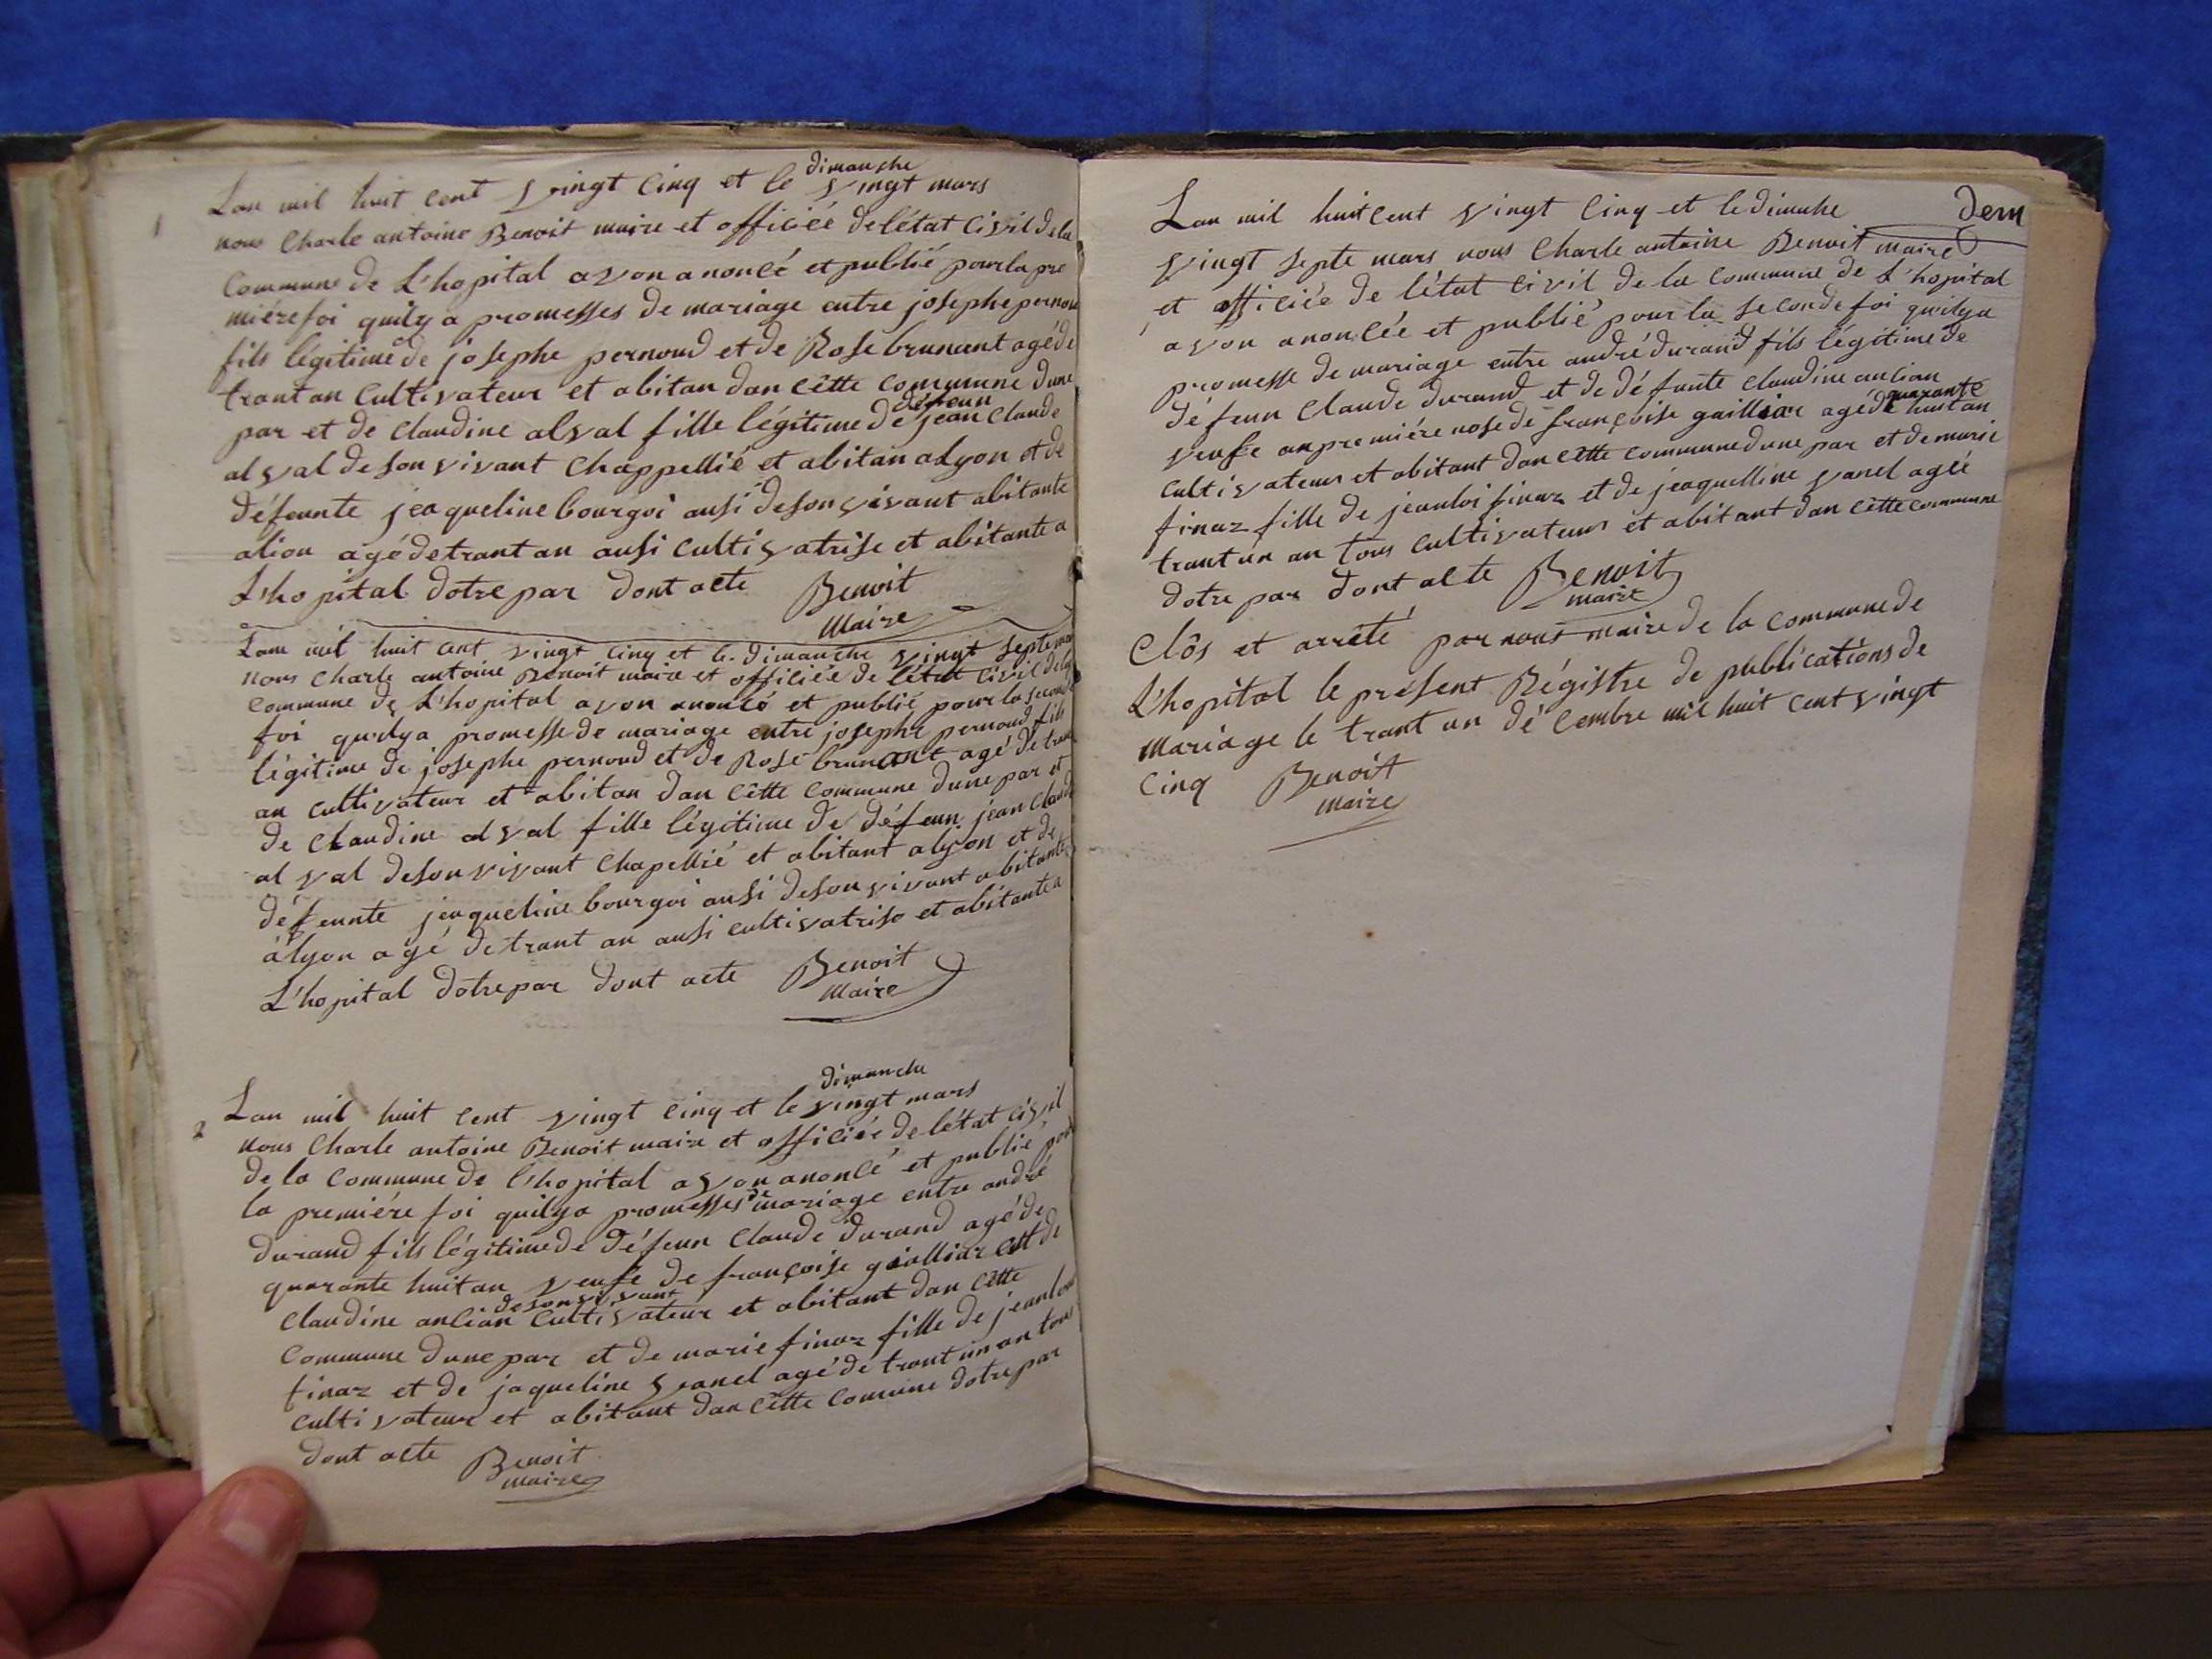 1
dimanche
Lan mil huit cent vingt cinq et le vingt mars
nous Charle antoine Benoit maire et officiée de létat Civil dela
Commune de L'hopital avon anoncé et publié pour la pre
miére foi quily a promesses de mariage entre josephe pernoud
fils légitime de josephe pernoud et de Rose brunant agé de
trant an Cultivateur et abitan dan cètte commune dune
défeun
par et de Claudine alval fille légitime de jean Claude
alval de son vivant Chappellié et abitan a Lyon et de
défeunte jeaqueline bourgoi ausi de son vivant abitante
alion agé de trant an ausi cultivatrise et abitante a
L'hopital dotre par dont acte Benoit
Maire
Lan mil huit cent vingt cinq et le dimanche vingt septe mar
nous Charle antoine Benoit maire et officiée de létat Civil dela
commune de L'hopital avon anoncé et publié pour la seconde
foi quilya promesse de mariage entre josephe pernoud fils
légitime de josephe pernoud et de Rose brunant agé de trant
an cultivateur et abitan dan cètte commune dune par et
de Claudine alval fille légitime de défeun jean Claude
al val de son vivant Chapellié et abitant alyon et de
défeunte jeaqueline bourgoi ausi de son vivant abitante
alyon agé de trant an ausi cultivatrise et abitante a
L'hopital dotre par dont acte Benoit
Maire
2
dimanche
Lan mil huit cent vingt cinq et le vingt mars
nous Charle antoine Benoit maire et officiée de létat civil
de la Commune de l'hopital avon anoncé et publié pour
la premiére foi quilya promesses de mariage entre andré
durand fils légitime de défeun Claude durand agé de
quarante huit an veufe de françoise gailliar et de
de son vivant
Claudine ancian Cultivateur et abitant dan cètte
Commune dune par et de marie finaz fille de jeanloui
finaz et de jaqueline vanel agé de trant un an tous
cultivateur et abitant dan cètte comune dotre par
dont acte Benoit
maire
dern
Lan mil huit cent vingt cinq et le dimache
vingt septe mars nous Charle antoine Benoit maire
et officiée de létat civil de la commune de L'hopital
avon anoncée et publié pour la seconde foi quilya
promesse de mariage entre andré durand fils légitime de
défeun Claude durand et de défunte Claudine ancian
quarante
veufe anpremiére nose de françoise gailliar agé de huit an
cultivateur et abitant dan cètte commune dune par et de marie
finaz fille de jeanloi finaz et de jeaquelline vanel agée
trant un an tous cultivateur et abitant dan cètte commune
dotre par dont acte Benoit
maire
Clôs et arrêté par nous maire de la commune de
L'hopital le présent Régistre de publications de
mariage le trant un décembre mil huit cent vingt
cinq Benoit
maire